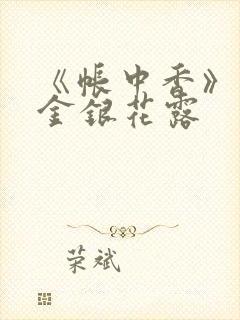 《帐中香》
金银花露
荣斌